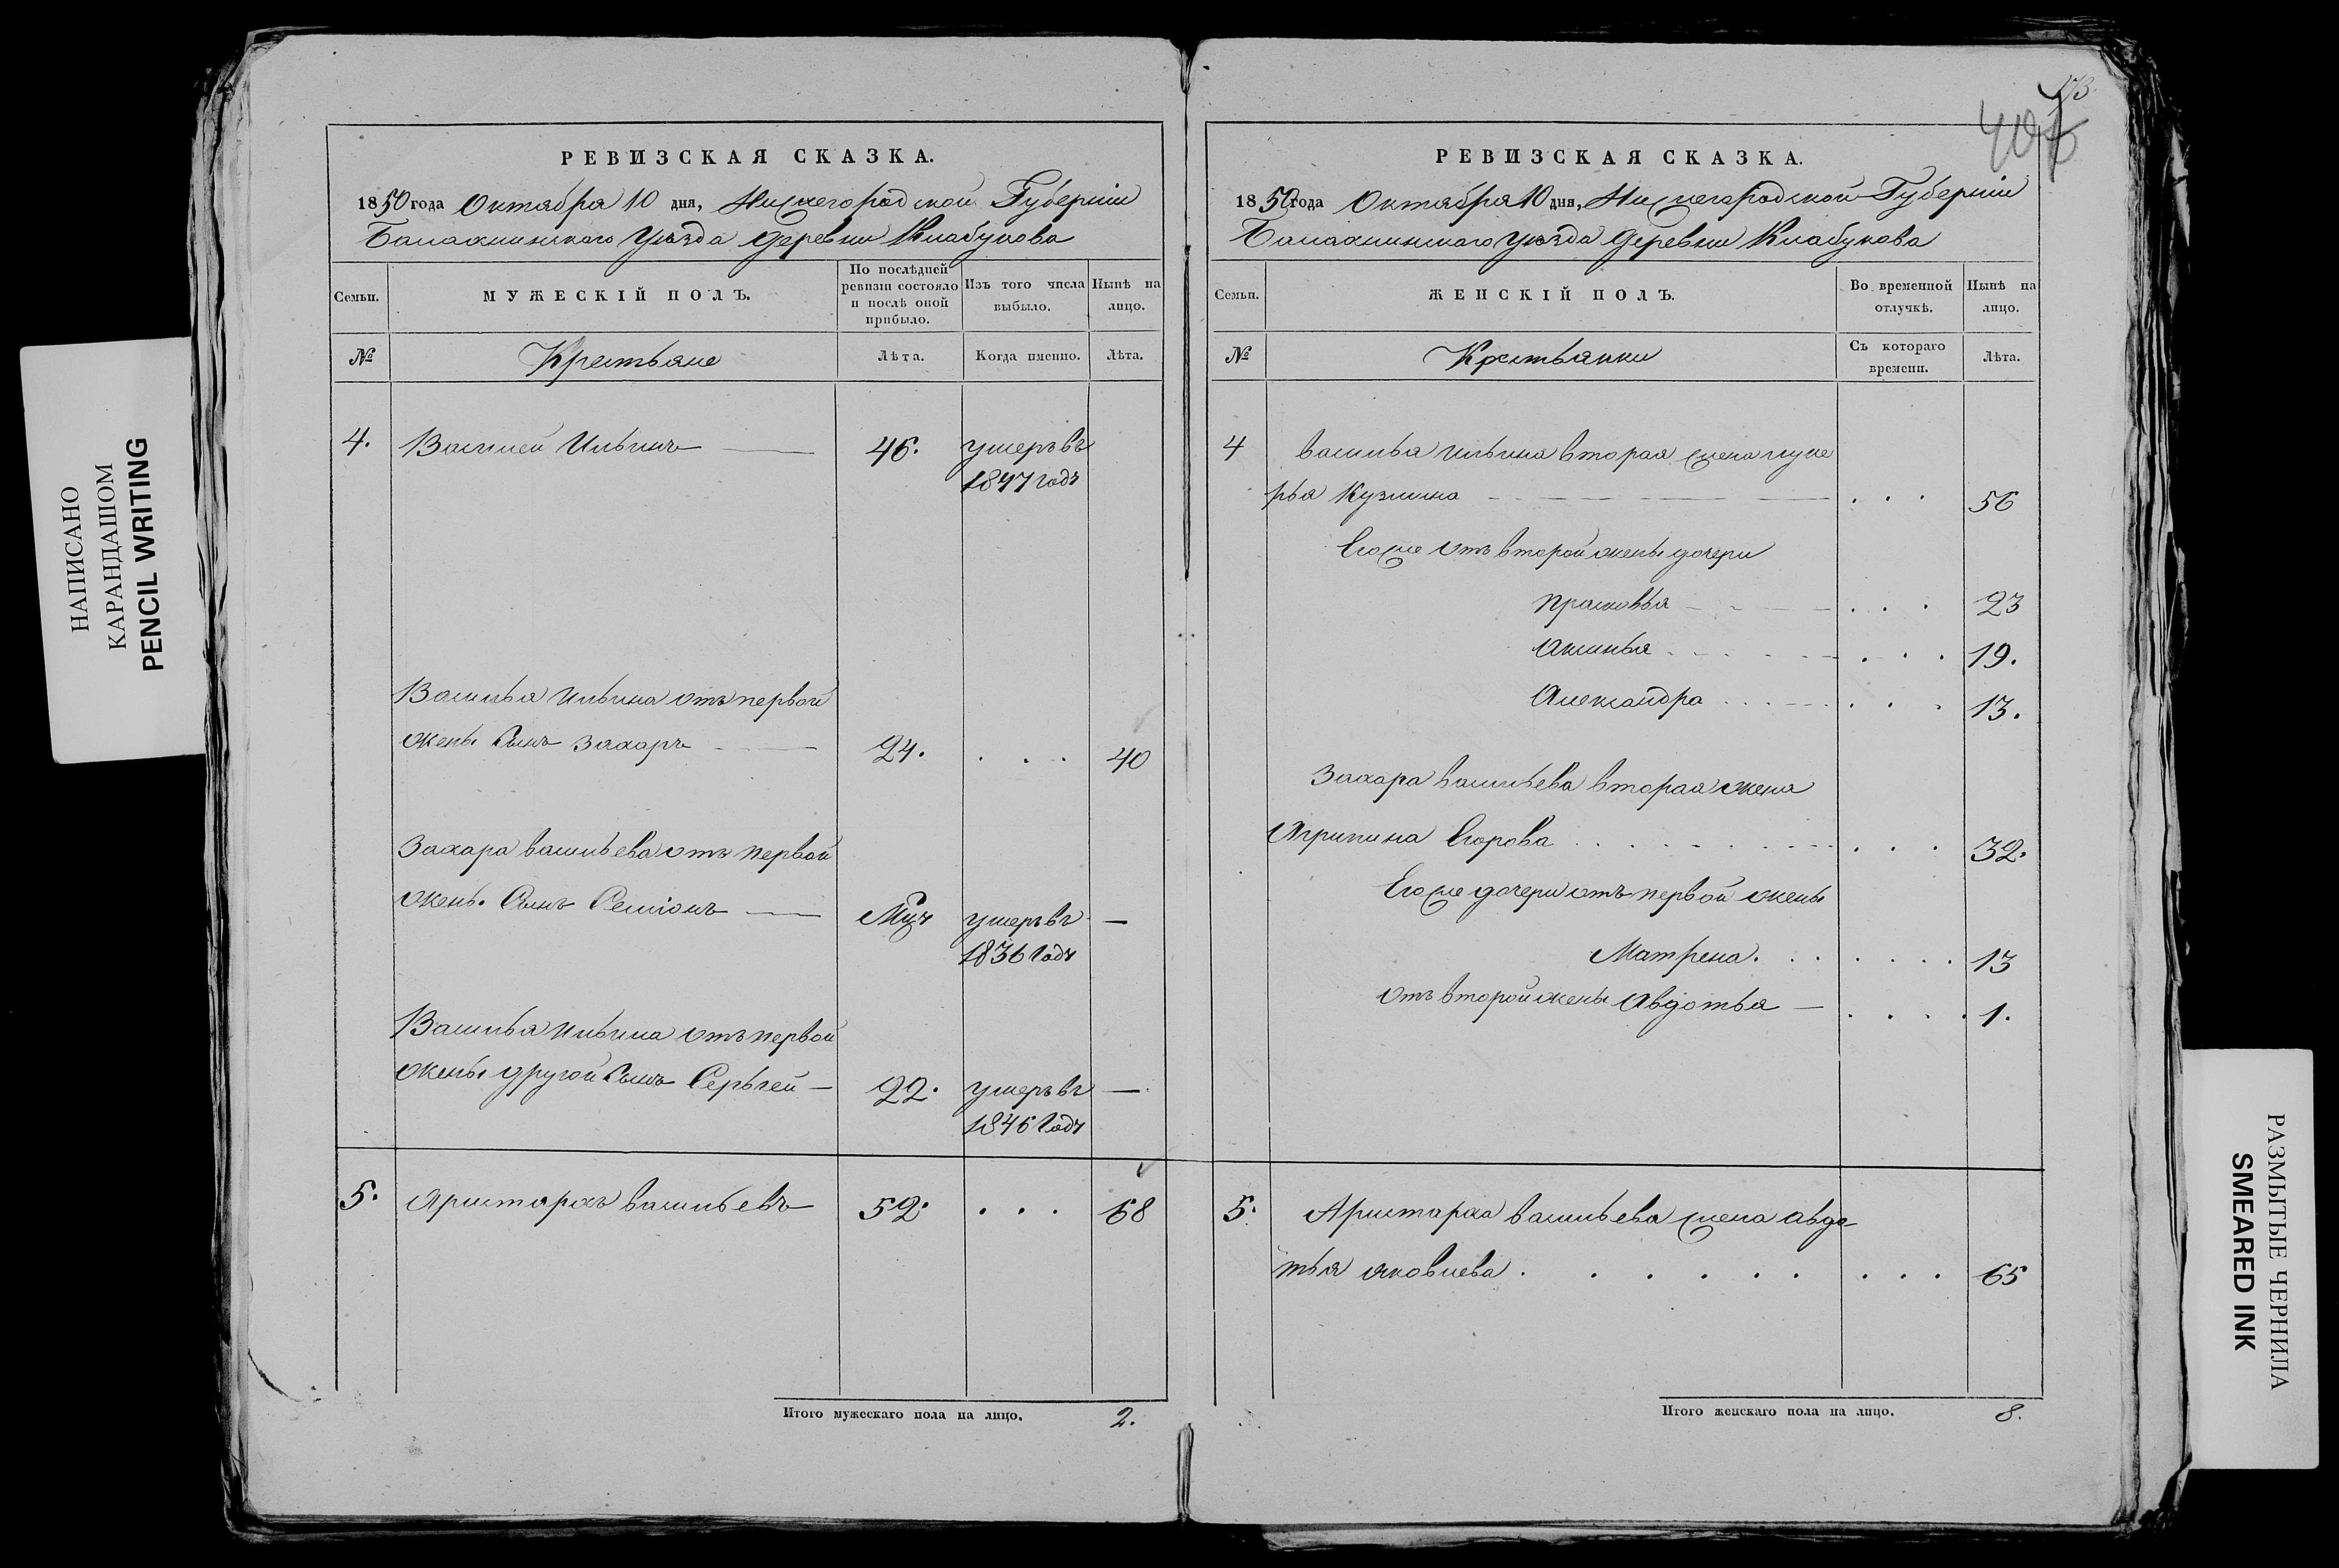 НАПИСАНО
КАРАНДАШОМ
PENCIL WRITING
РЕВИЗСКАЯ СКАЗКА.
1850 года Октября 10 дня, Нижегородской Губернiи
Балахнинскаго Уѣзда Деревни Клабукова
Семьи.
МУЖЕСКІЙ ПОЛЪ.
По послѣдней
ревизіи состояло
и послѣ оной
прибыло.
Изъ того числа
выбыло.
Нынѣ на
лицо.
№
Крестьяне
Лѣта.
Когда именно.
Лѣта.
4. Василей Ильинъ 46. умеръ въ
1847 годѣ
Василья Ильина отъ первой
жены Сынъ Захаръ 24. . . . 40
Захара Васильева отъ первой
жены Сынъ Семіонъ умеръ въ —
1836 Годѣ
Василья Ильина отъ первой
жены другой Сынъ Сергѣй — 22. умеръ въ —
1846 Годѣ
5. Аристархъ Васильевъ 52. . . . 68
Итого мужескаго пола на лицо. 2.
РЕВИЗСКАЯ СКАЗКА.
1850 года Октября 10 дня, Нижегородской Губернiи
Балахнинскаго Уѣзда Деревни Клабукова
Семьи.
ЖЕНСКІЙ ПОЛЪ.
Во временной
отлучкѣ.
Нынѣ на
лицо.
№
Крестьянки
Съ котораго
времени.
Лѣта.
4 Василья Ильина вторая жена Луке
рья Кузмина . . . 56
Его же отъ второй жены дочери
Прасковья . . . 23
Аксинья . . . 19.
Александра . . . 13.
Захара Васильева вторая жена
Агрипина Егорова . . . 32.
Его же дочери отъ первой жены
Матрена . . . 13
отъ второй жены Авдотья — . . . 1.
5. Аристарха Васильева жена Авдо-
тья Яковлева . . . 65
Итого женскаго пола на лицо. 8.
РАЗМЫТЫЕ ЧЕРНИЛА
SMEARED INK